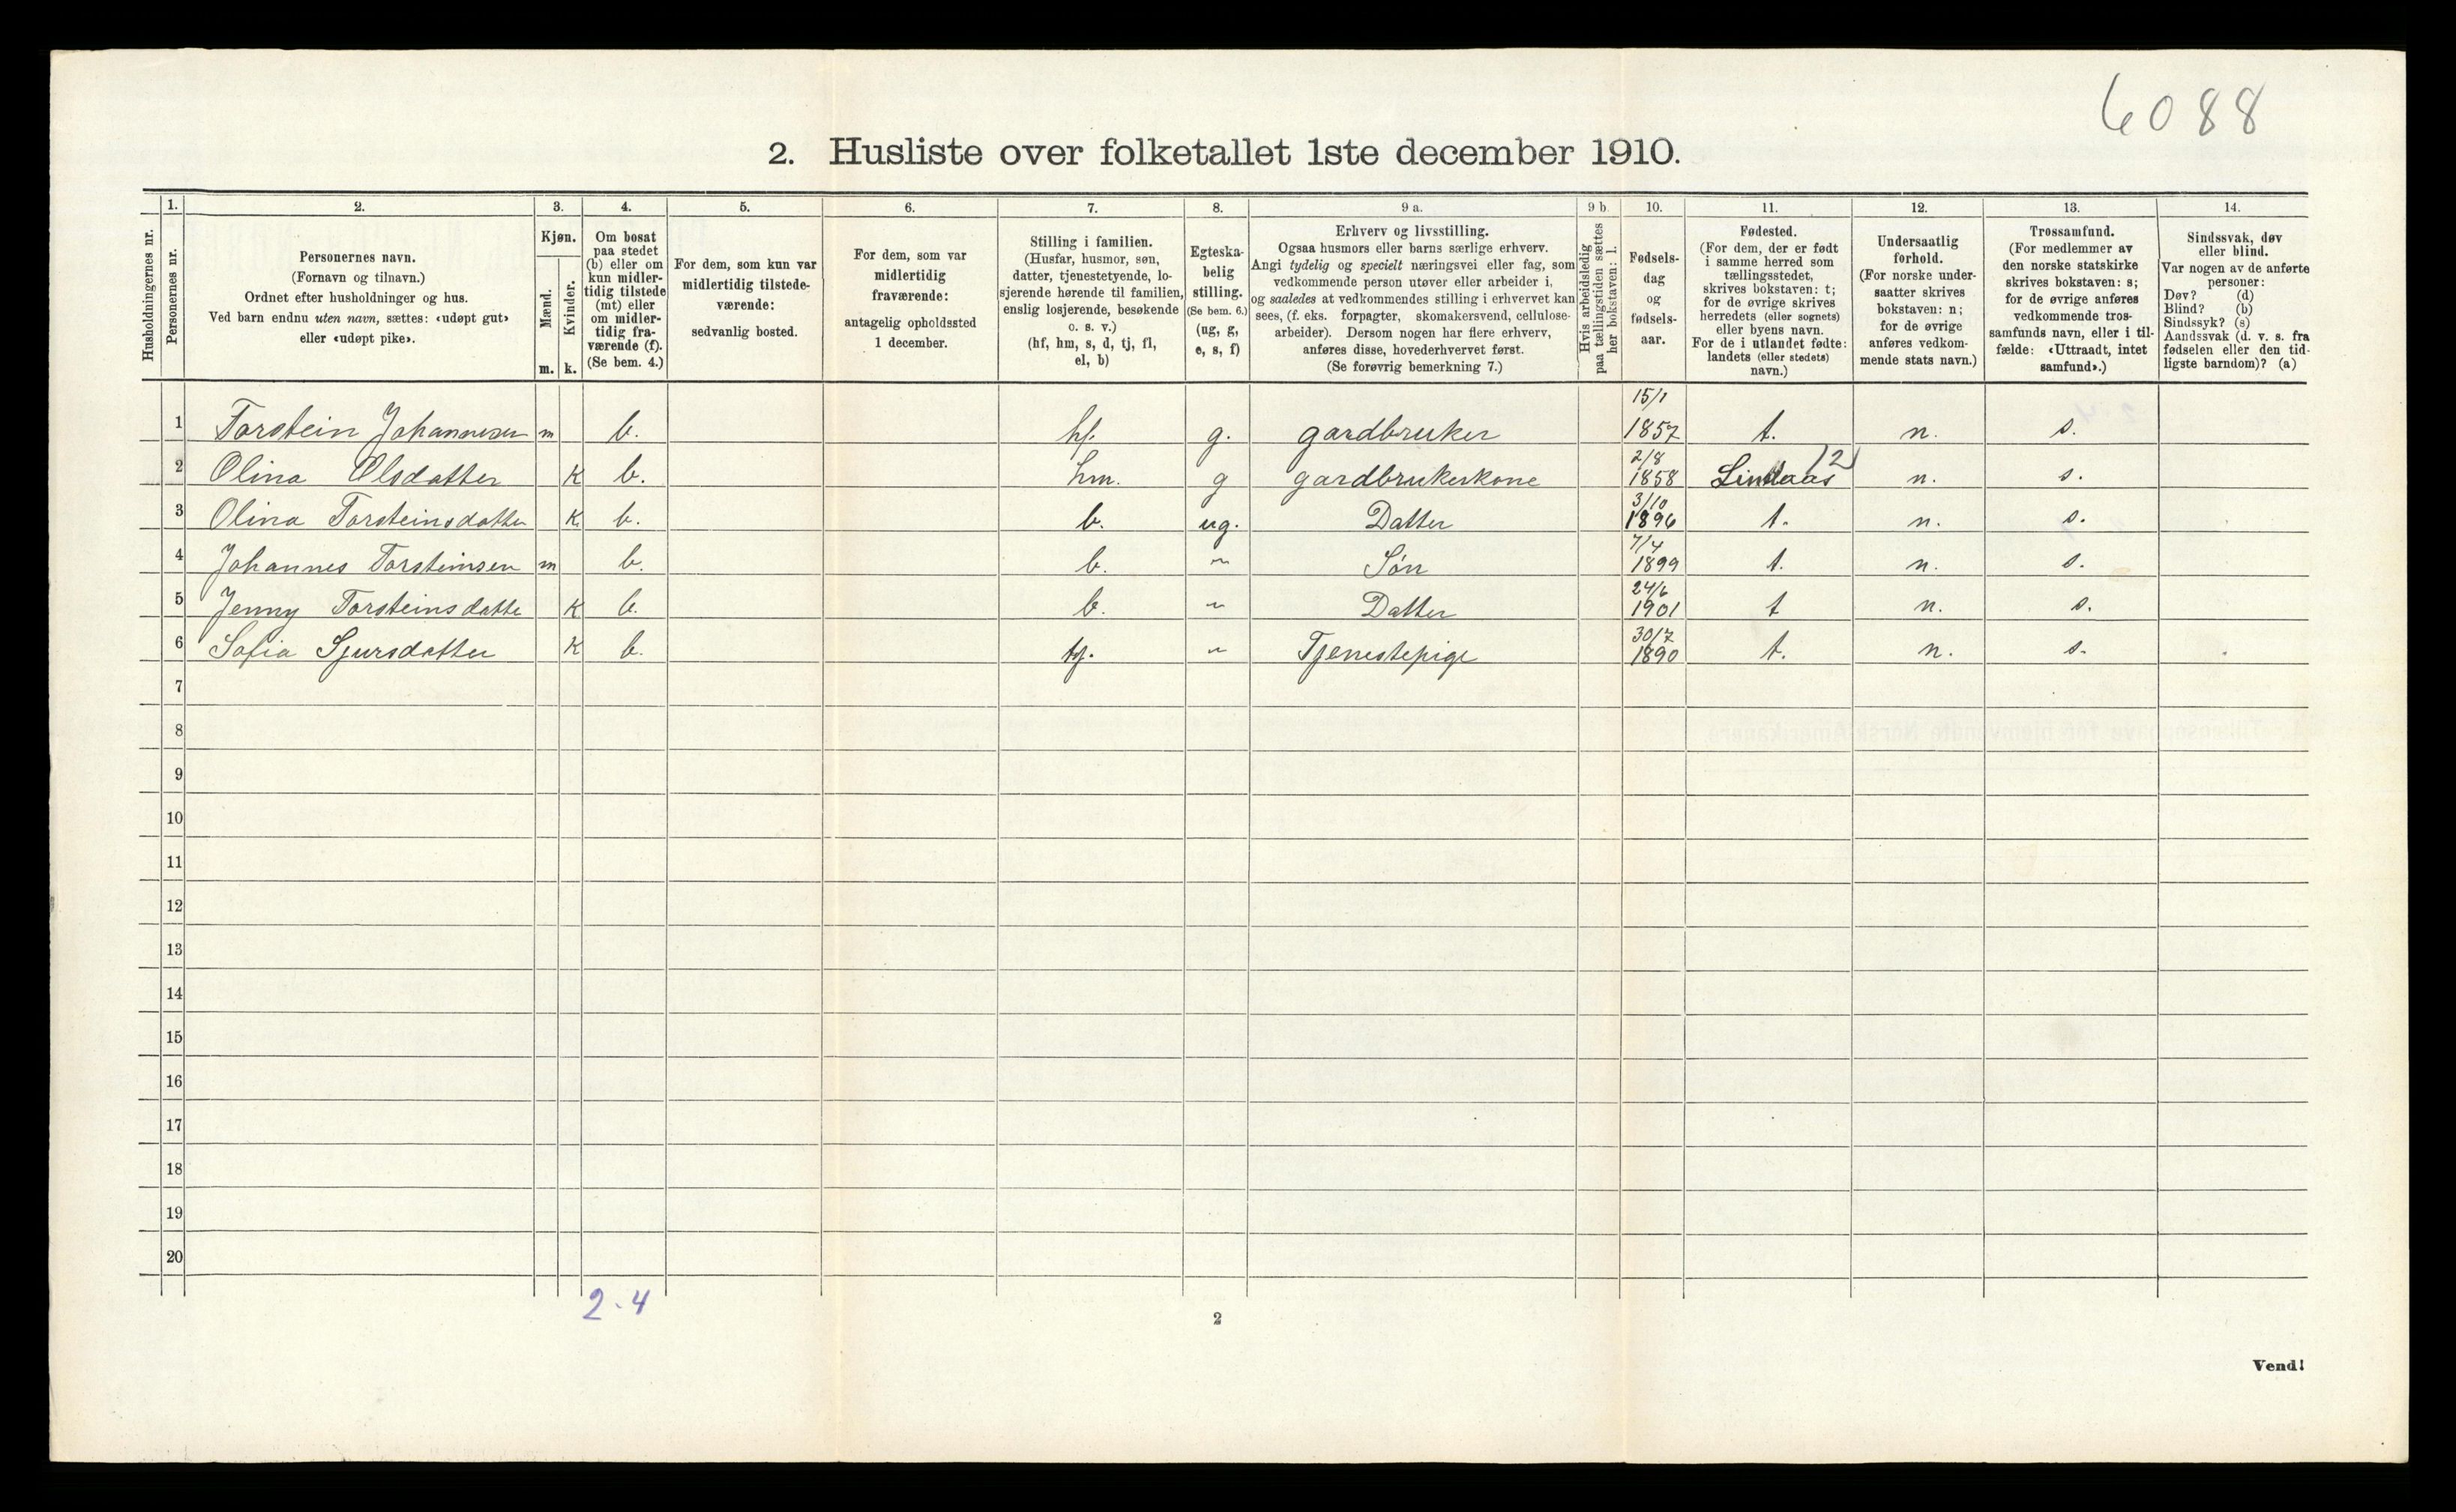 6088
2. Husliste over folketallet 1ste december 1910.
1. 2. 3. 4. 5. 6. 7. 8. 9 a. 9 b. 10. 11. 12. 13. 14.
Husholdningernes nr.
Personernes nr.
Personernes navn.
(Fornavn og tilnavn.)
Ordnet efter husholdninger og hus.
Ved barn endnu uten navn, sættes: «udøpt gut»
eller «udøpt pike».
Kjøn.
Mænd.
Kvinder.
m. k.
Om bosat
paa stedet
(b) eller om
kun midler-
tidig tilstede
(mt) eller
om midler-
tidig fra-
værende (f).
(Se bem. 4.)
For dem, som kun var
midlertidig tilstede-
værende:
sedvanlig bosted.
For dem, som var
midlertidig
fraværende:
antagelig opholdssted
1 december.
Stilling i familien.
(Husfar, husmor, søn,
datter, tjenestetyende, lo-
sjerende hørende til familien,
enslig losjerende, besøkende
o. s. v.)
(hf, hm, s, d, tj, fl,
el, b)
Egteska-
belig
stilling.
(Se bem. 6.)
(ug, g,
e, s, f)
Erhverv og livsstilling.
Ogsaa husmors eller barns særlige erhverv.
Angi tydelig og specielt næringsvei eller fag, som
vedkommende person utøver eller arbeider i,
og saaledes at vedkommendes stilling i erhvervet kan
sees, (f. eks. forpagter, skomakersvend, cellulose-
arbeider). Dersom nogen har flere erhverv,
anføres disse, hovederhvervet først.
(Se forøvrig bemerkning 7.)
Hvis arbeidsledig
paa tællingstiden sættes
her bokstaven: l.
Fødsels-
dag
og
fødsels-
aar.
Fødested.
(For dem, der er født
i samme herred som
tællingsstedet,
skrives bokstaven: t;
for de øvrige skrives
herredets (eller sognets)
eller byens navn.
For de i utlandet fødte:
landets (eller stedets)
navn.)
Undersaatlig
forhold.
(For norske under-
saatter skrives
bokstaven: n;
for de øvrige
anføres vedkom-
mende stats navn.)
Trossamfund.
(For medlemmer av
den norske statskirke
skrives bokstaven: s;
for de øvrige anføres
vedkommende tros-
samfunds navn, eller i til-
fælde: «Uttraadt, intet
samfund».)
Sindssvak, døv
eller blind.
Var nogen av de anførte
personer:
Døv? (d)
Blind? (b)
Sindssyk? (s)
Aandssvak (d. v. s. fra
fødselen eller den tid-
ligste barndom)? (a)
1 Torstein Johannesen m b. hf. g. gardbruker 15/1 1857 t. n. s.
2 Olina Olsdatter K b. hm. g gardbrukerkone 2/8 1858 Lindaas 12 n. s.
3 Olina Torsteinsdatter K b. b. ug. Datter 3/10 1896 t. n. s.
4 Johannes Torsteinsen m b. b. " Søn 7/4 1899 t. n. s.
5 Jenny Torsteinsdatte K b. b. " Datter 24/6 1901 t n. s.
6 Sofia Sjursdatter K b. tj. " Tjenestepige 30/7 1890 t. n. s.
7
8
9
10
11
12
13
14
15
16
17
18
19
20
2-4
2
Vend!